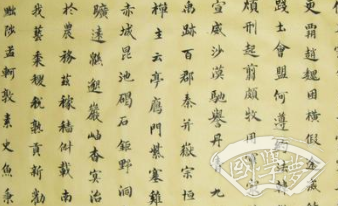 更霸趙魏困橫假途滅
踐土會盟何遵約法
煩刑起翦頗牧用軍
宣威沙漠馳譽丹青九
禹跡百郡秦并嶽宗恒
禪主云亭鴈門紫塞雞
赤城昆池碣石鉅野洞
曠遠緜邈巖岫杳冥治
於農務茲稼穡俶載南
我藝黍稷稅熟貢新勸
黜陟孟軻敦素史魚秉
國學夢